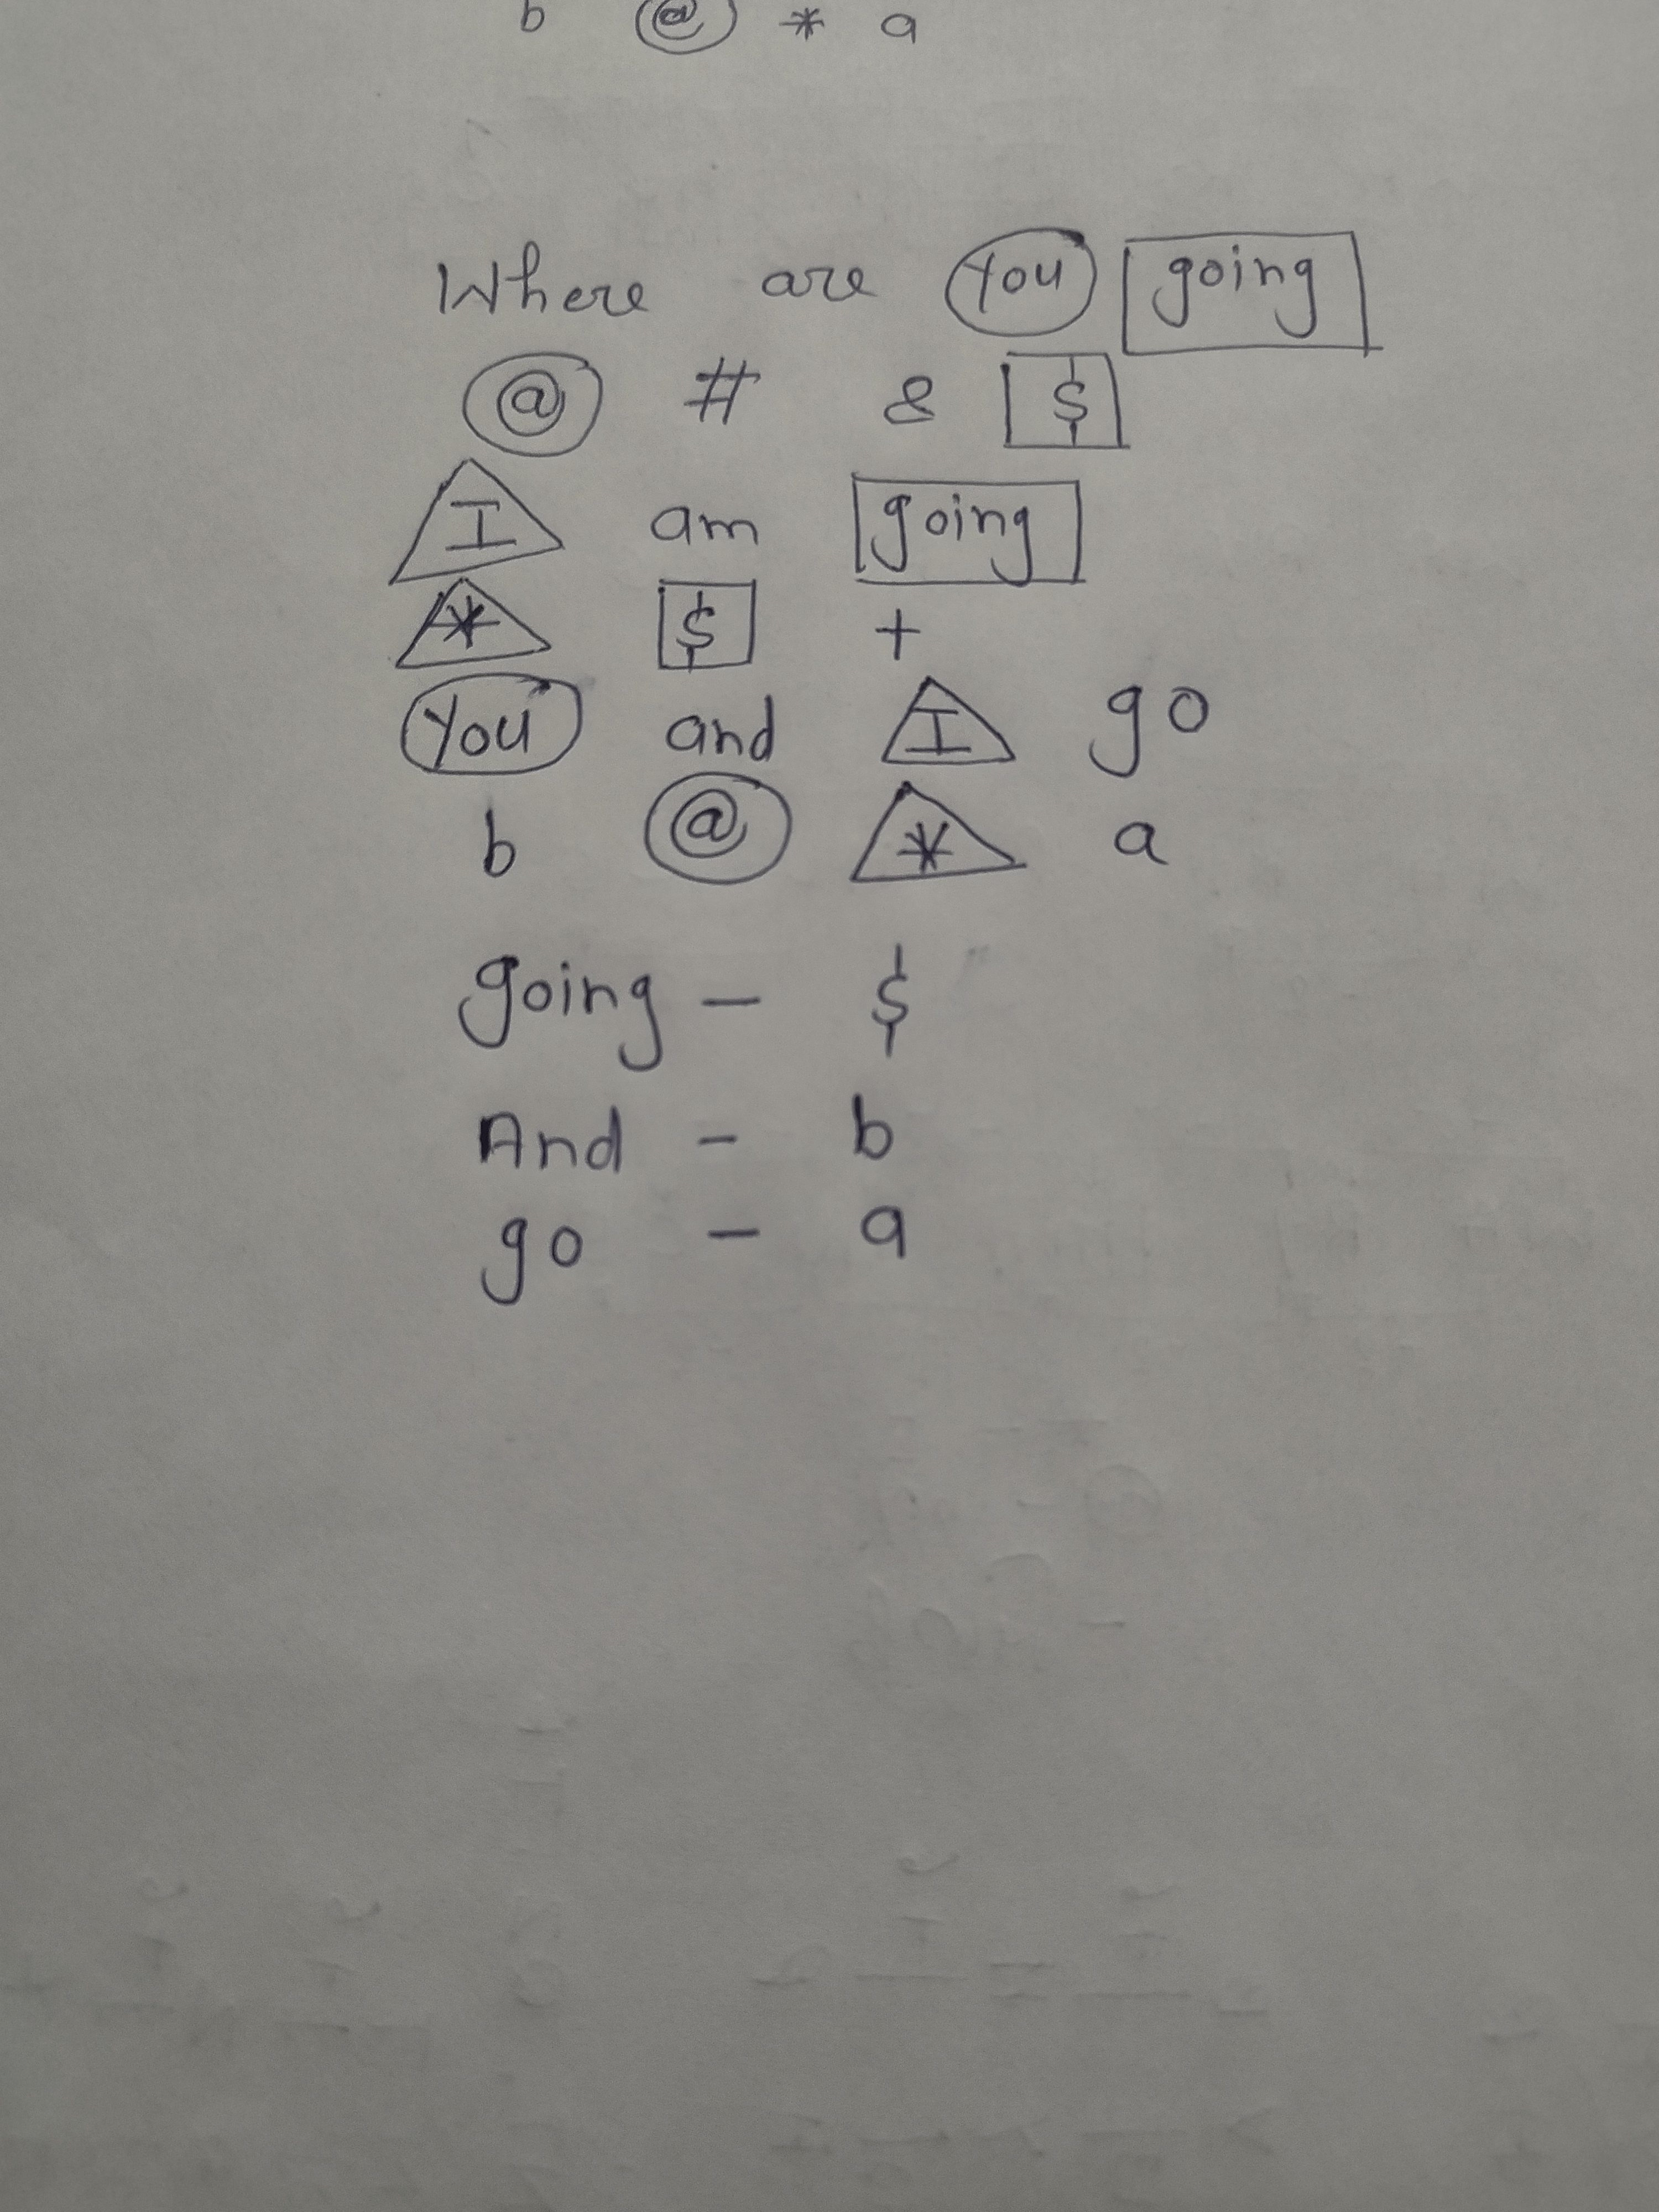 b @ * a
Where are You going
@ # & $
I am going
* $ +
You and I go
b @ * a
going - $
And - b
go - a